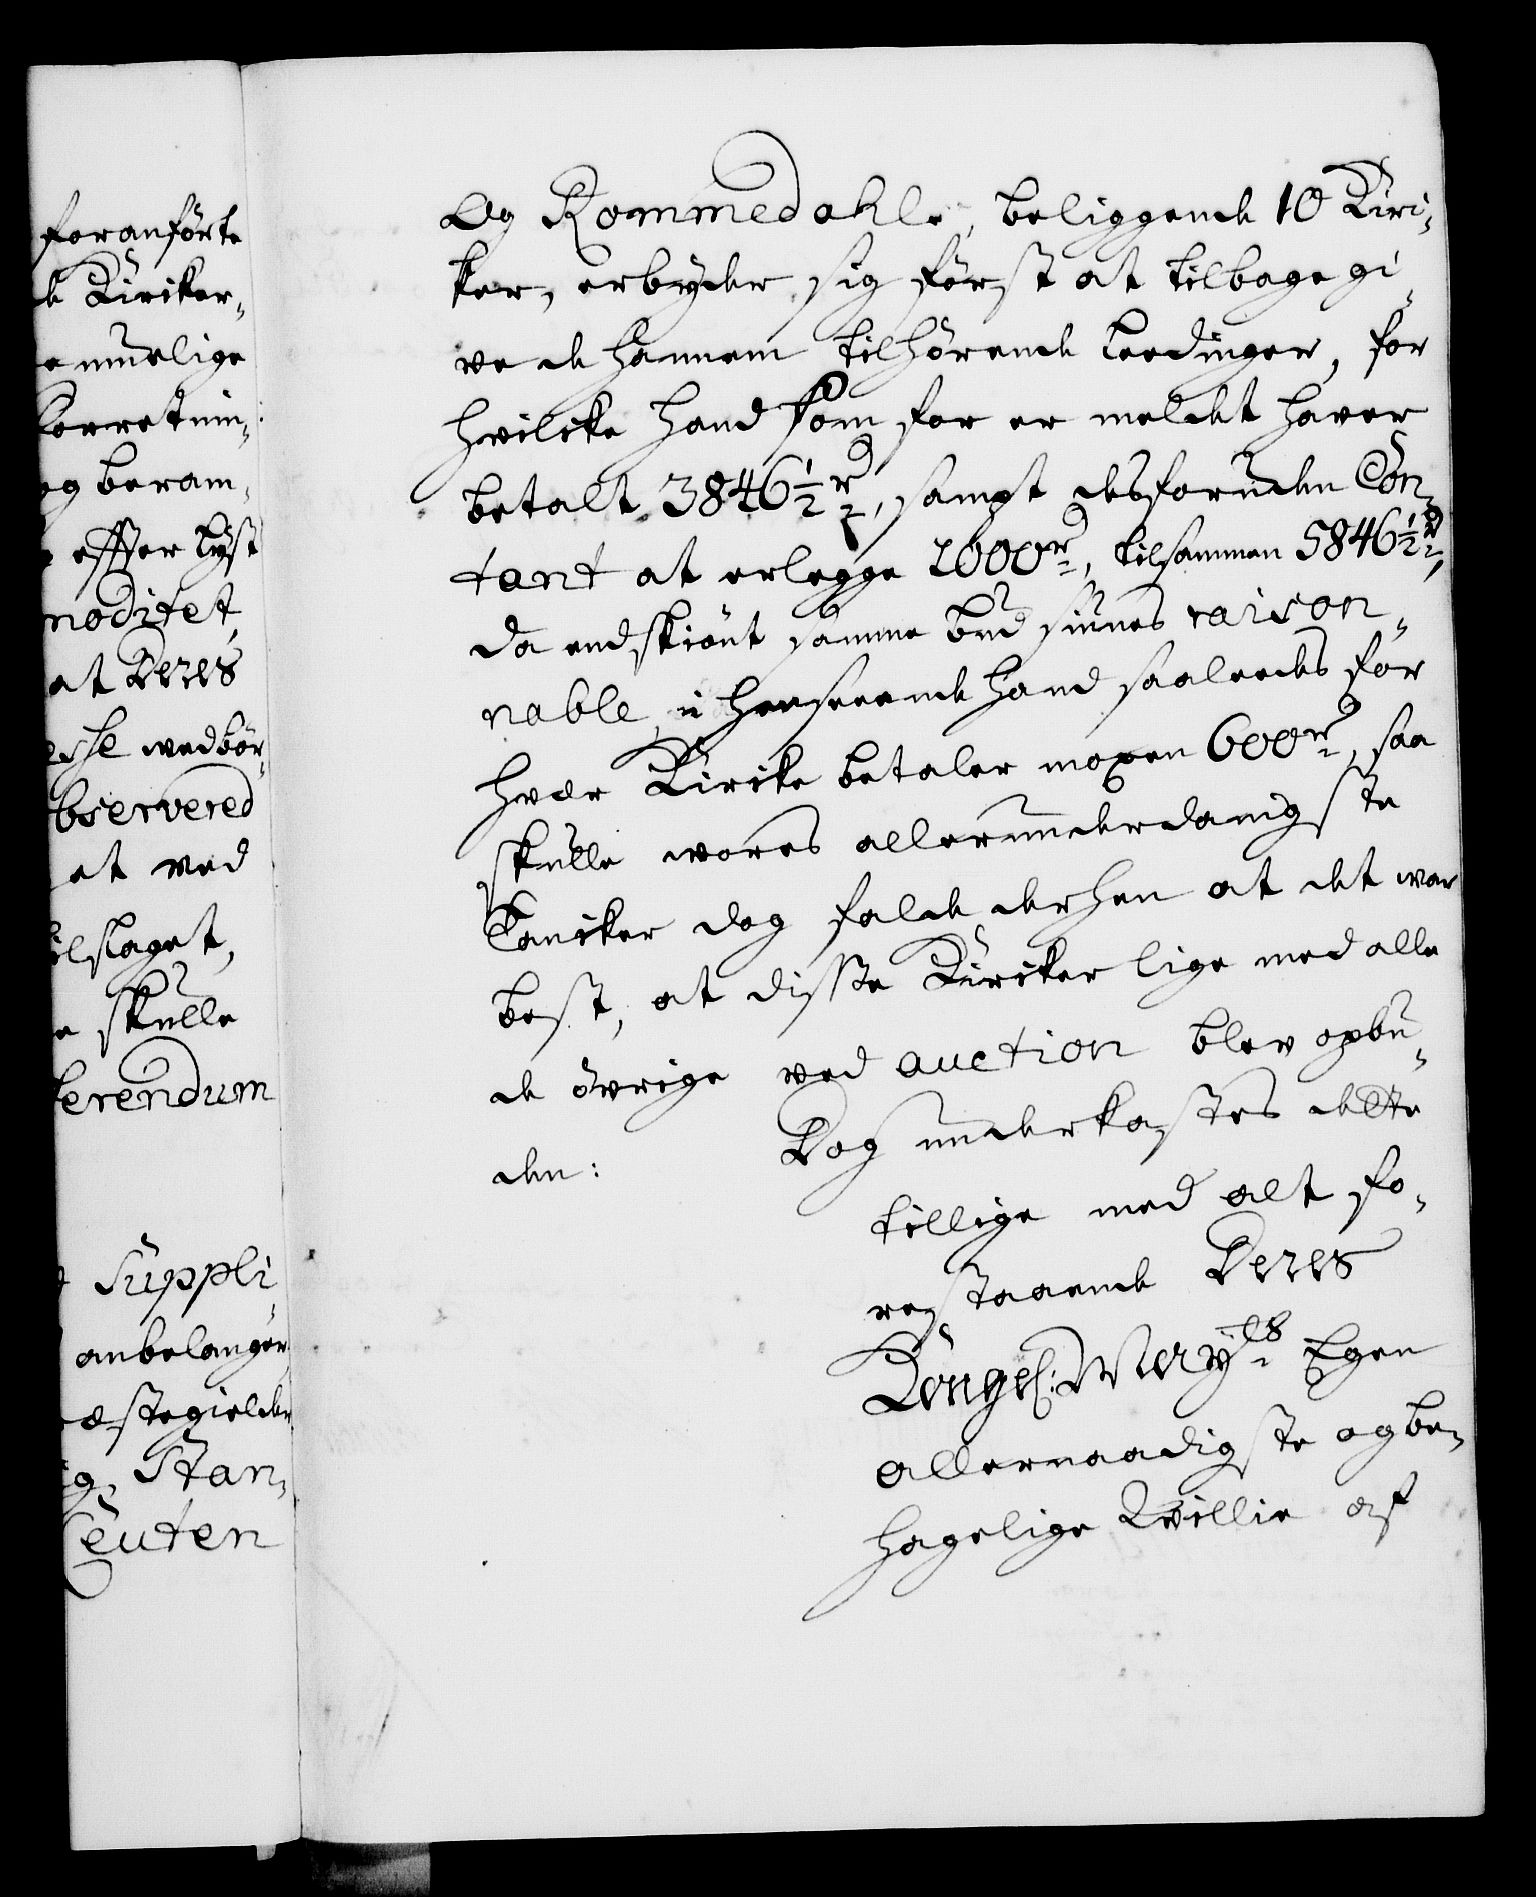 foranförte
de Kirker,
e muelige
forretnin,
og beram,
effter lyst
moditet,
at Deres
esse wedbör,
bserveret
et ved
ilslaget,
e skulle
ferendum
Suppli,
anbelanger
æstegielder
g, Stan,
Leuten
Og Rommedahle, beliggende 10 Kiri,
ker, erbyder sig först at tilbage gi,
ve de hannem tilhörende Leedinger, for
hvilcke hand som for er meldet haver
betalt 3846½ rd, sampt desforuden Con,
tant at erlegge 2000 rd, tilsammen 5846½ rd,
da endskiönt samme bud siunes raison,
nable, i henseende hand saaleedes for
hver Kircke betaler moxen 600 rd, saa
skulle wores allerunderdanigste
Tancker dog falde derhen at det war
best, at disse Kircker lige med alle
de övrige ved auction blev opbu,
den: Dog underkastes dette
tillige med alt fo,
restaaende Deres
Kongel: May.ts Egen
allernaadigste og be,
hagelige Willie af